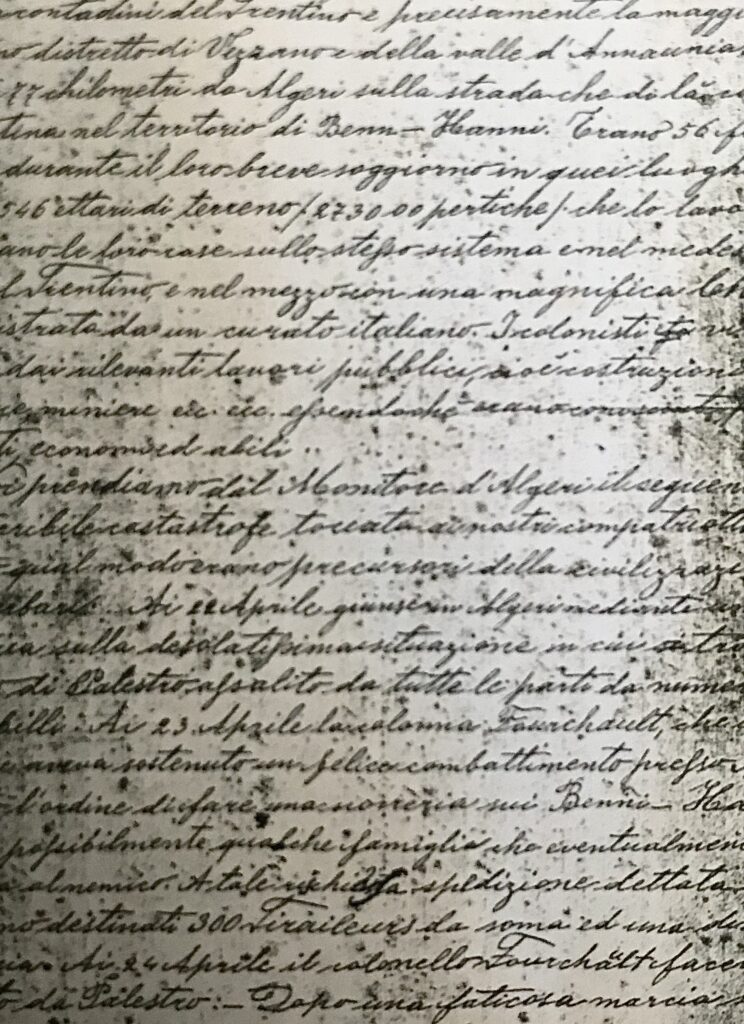 contadini del Trentino e precisamente la maggi
no distretto di Vezzano e della valle d'Annaunia
77 chilometri da Algeri sulla strada che di là co
tina nel territorio di Benn – Hanni. Erano 56 f
durante il loro breve soggiorno in quei luogh
546 ettari di terreno /273000 pertiche/ che lo lavo
ano le loro case sullo stesso sistema e nel mede
l Trentino, e nel mezzo con una magnifica
istrata da un curato italiano. I colonisti
dai rilevanti lavori pubblici, cioè costruzione
e, miniere ecc. ecc. essendochè erano conosciuti
ti, economi ed abili ..
prendiamo dal Monitore d'Algeri il seguen
eribile castastrofe toccata ai nostri compatriotti
qual modo erano precursori della civilizzazi
Ai 22 Aprile giunse in Algeri mediante
sulla desolatissima situazione in cui
di Palestro assalito da tutte le parti da nume
billi. Ai 23 Aprile la colonna Fourchault, che
e aveva sostenuto un felice combattimento presso
l'ordine di fare una scorreria sui Benni – Ha
possibilmente qualche famiglia che eventualmen
a al nemico. A tale spedizione dettata
no destinati 300 Tiraileurs da soma ed una
Ai 24 Aprile il colonello Fourchält face
to da Palestro: – Dopo una faticosa marcia